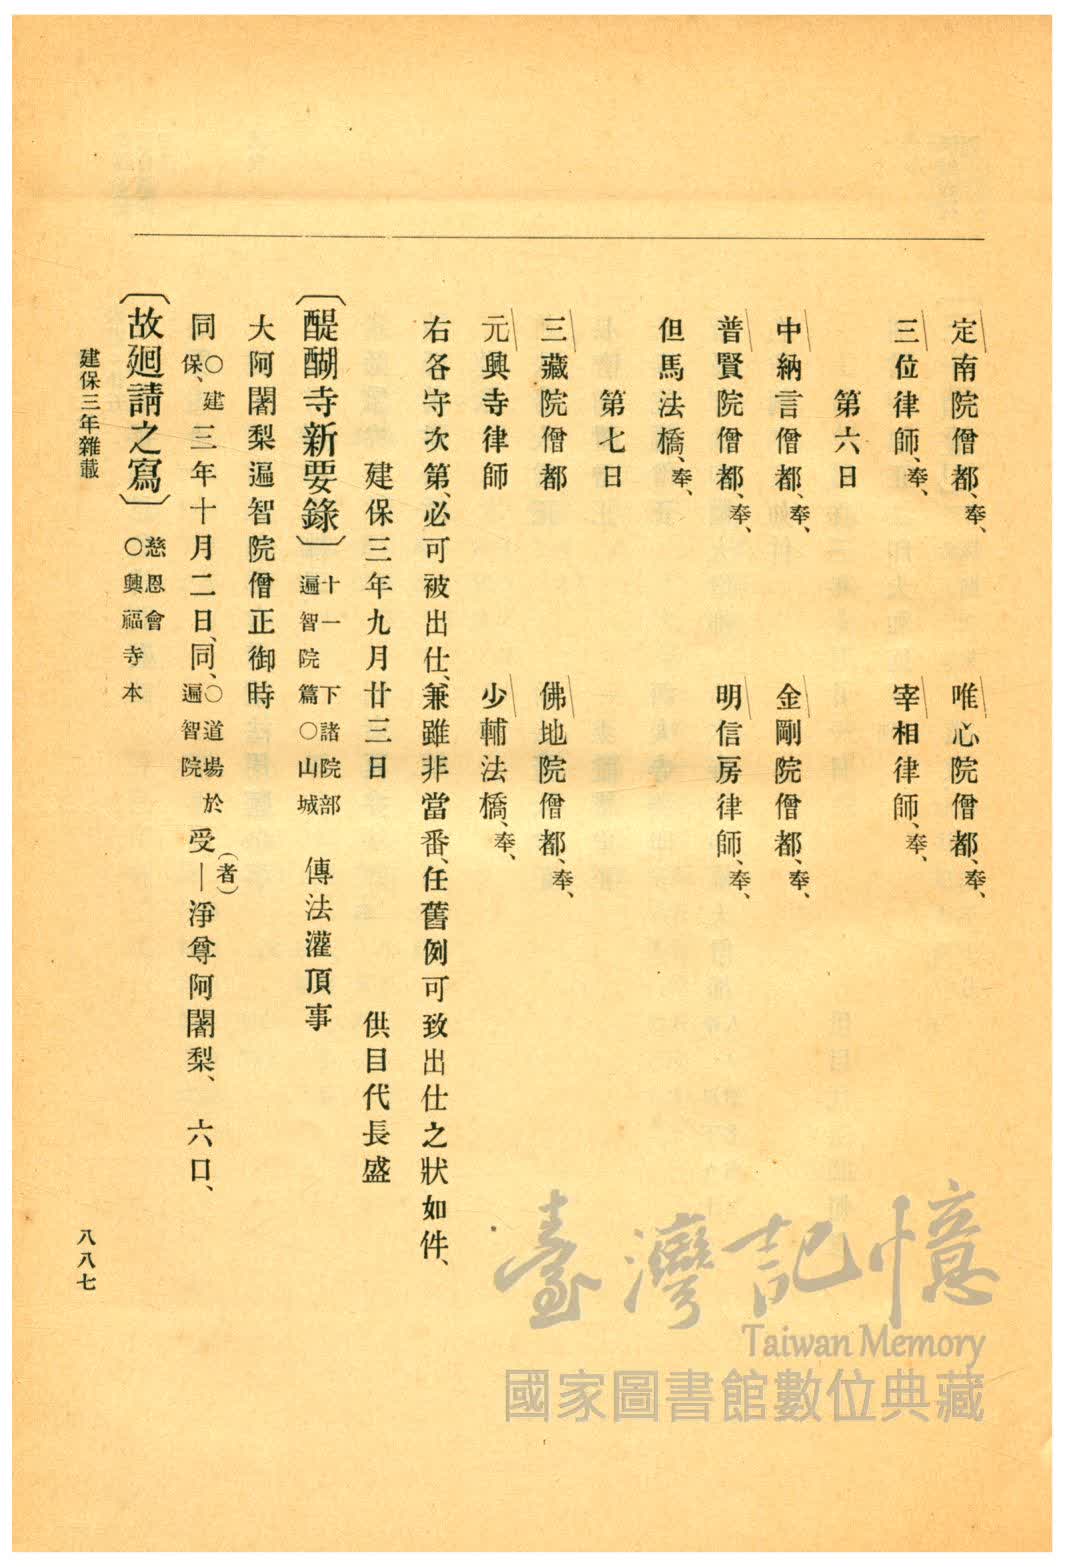 定南院僧都、奉、　唯心院僧都、奉、
三位律師、奉、　宰相律師、奉、
第六日
中納言僧都、奉、　金剛院僧都、奉、
普賢院僧都、奉、　明信房律師、奉、
但馬法橋、奉、
第七日
三藏院僧都　佛地院僧都、奉、
元興寺律師　少輔法橋、奉、
右各守次第、必可被出仕、兼雖非當番、任舊例可致出仕之狀如件、
建保三年九月廿三日　供目代長盛
〔醍醐寺新要錄〕十一　下諸院部遍智院篇○山城　傳法灌頂事
大阿闍梨遍智院僧正御時
同○建保、三年十月二日、同、○道場於遍智院受―(者)淨尊阿闍梨、六口、
〔故廻請之寫〕慈恩會○興福寺本
建保三年雜載
八八七
臺灣記憶
Taiwan Memory
國家圖書館數位典藏